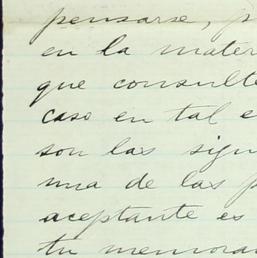 pensarse, p
en la mater
que consulte
caso en tal e
son las sign
una de las p
aceptante es
tu memora